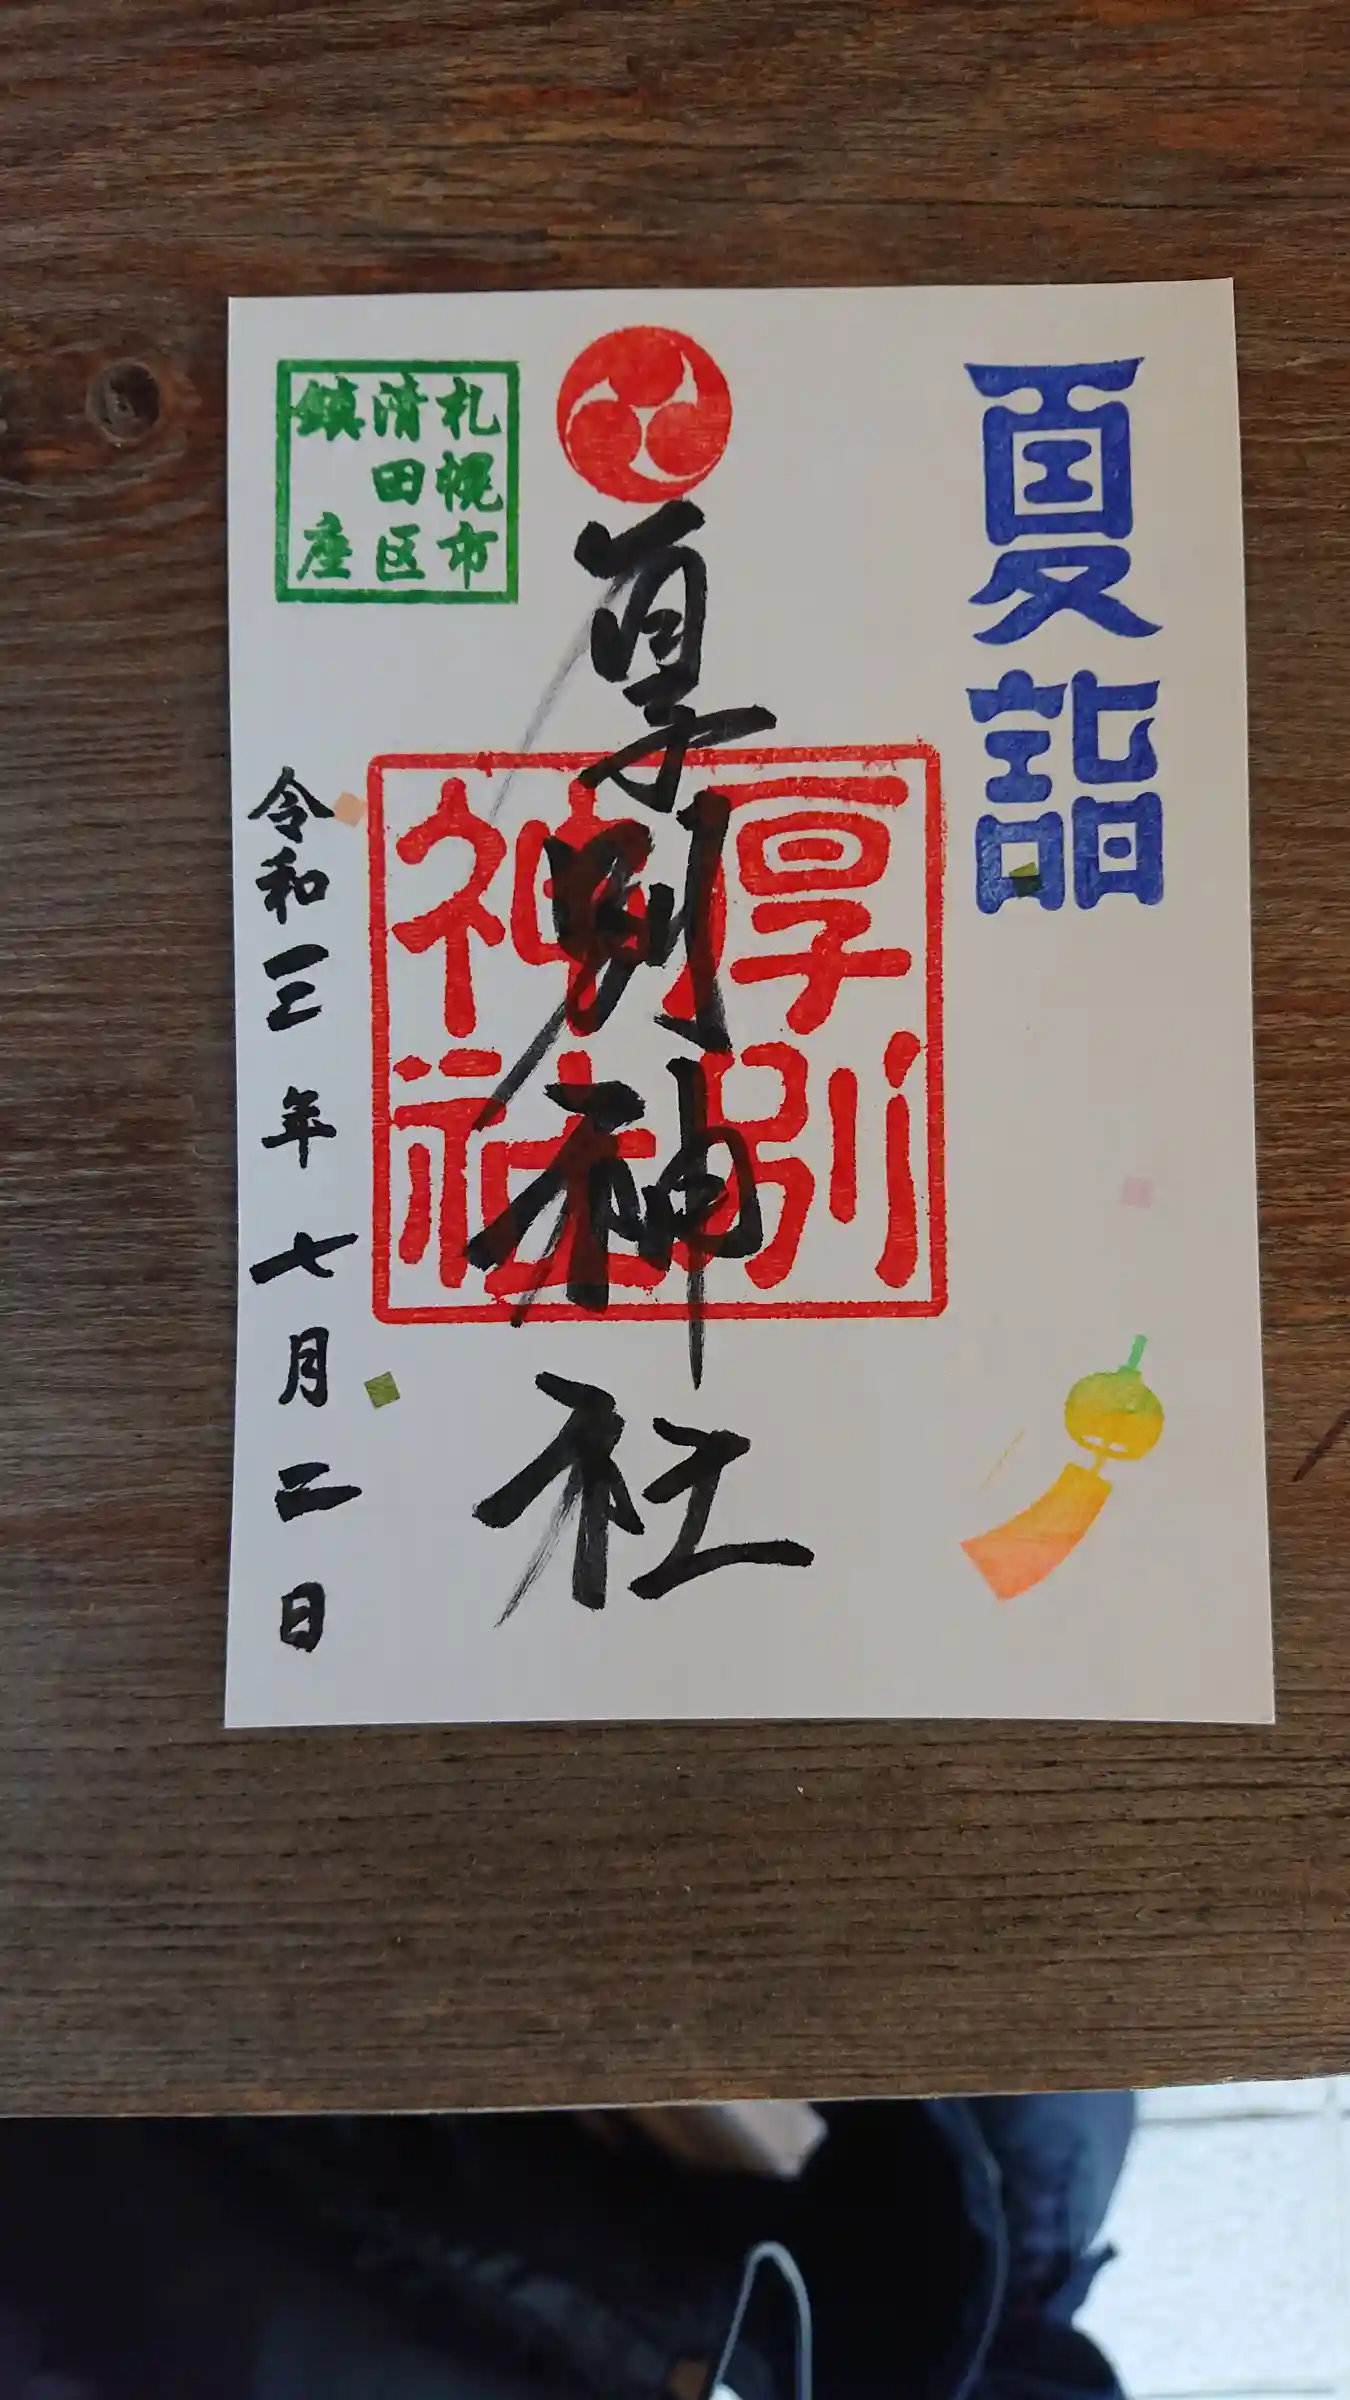 夏詣
厚別神社
厚別
神社
札幌市
清田区
鎮座
令和三年七月二日